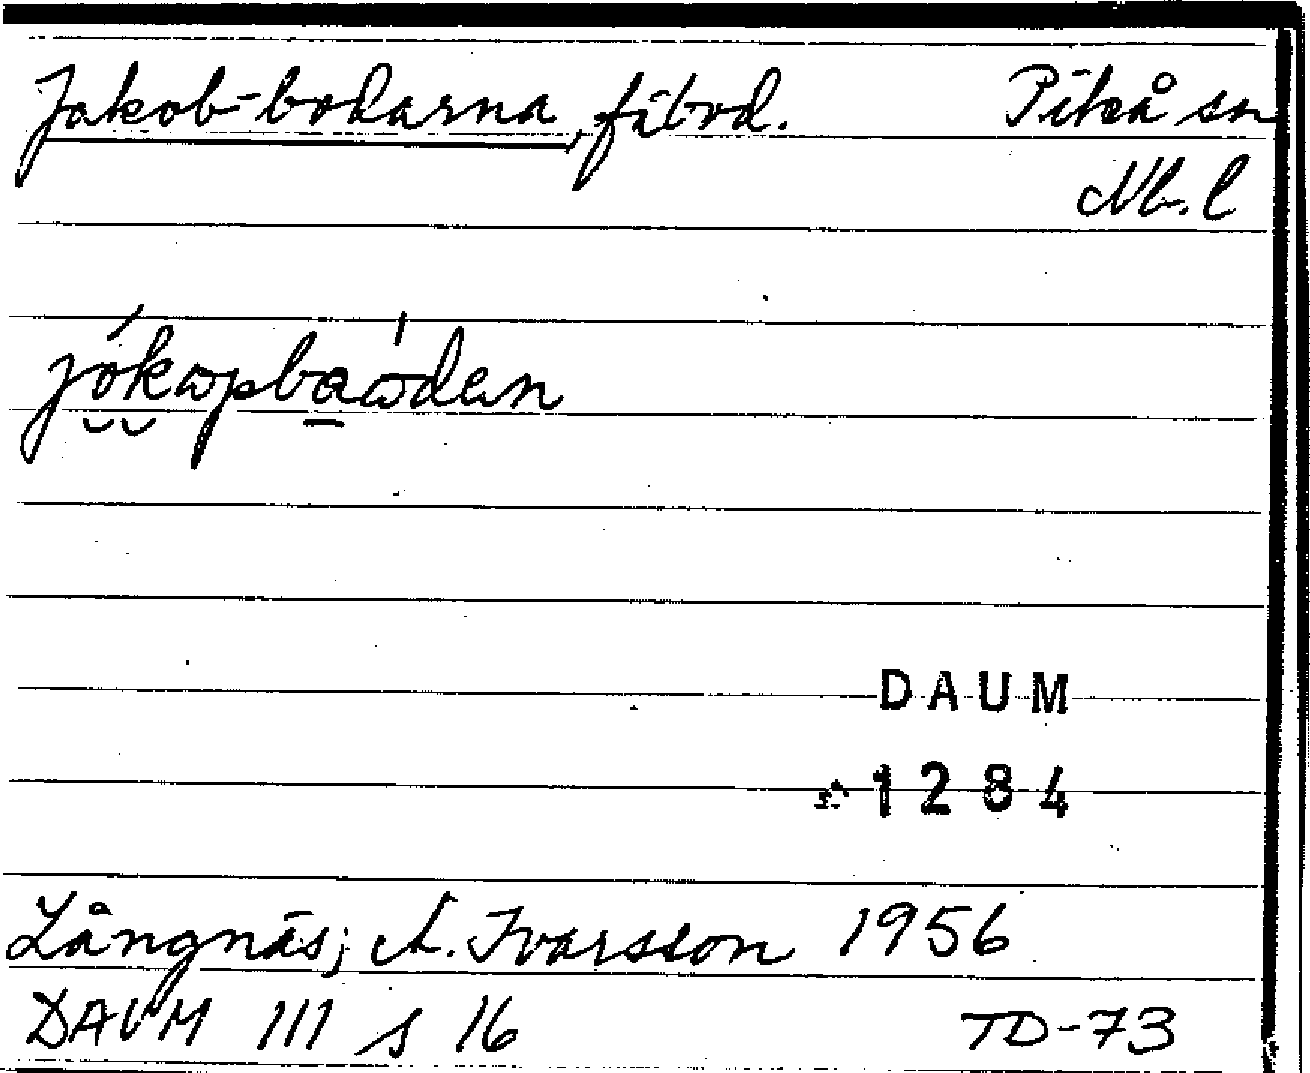 Jakob-bodarna, fäbod. Piteå sn
Nb. l
jókapbaòden
DAUM
1284
Långnäs; A. Ivarsson 1956
DAUM 111 s 16 TD-73